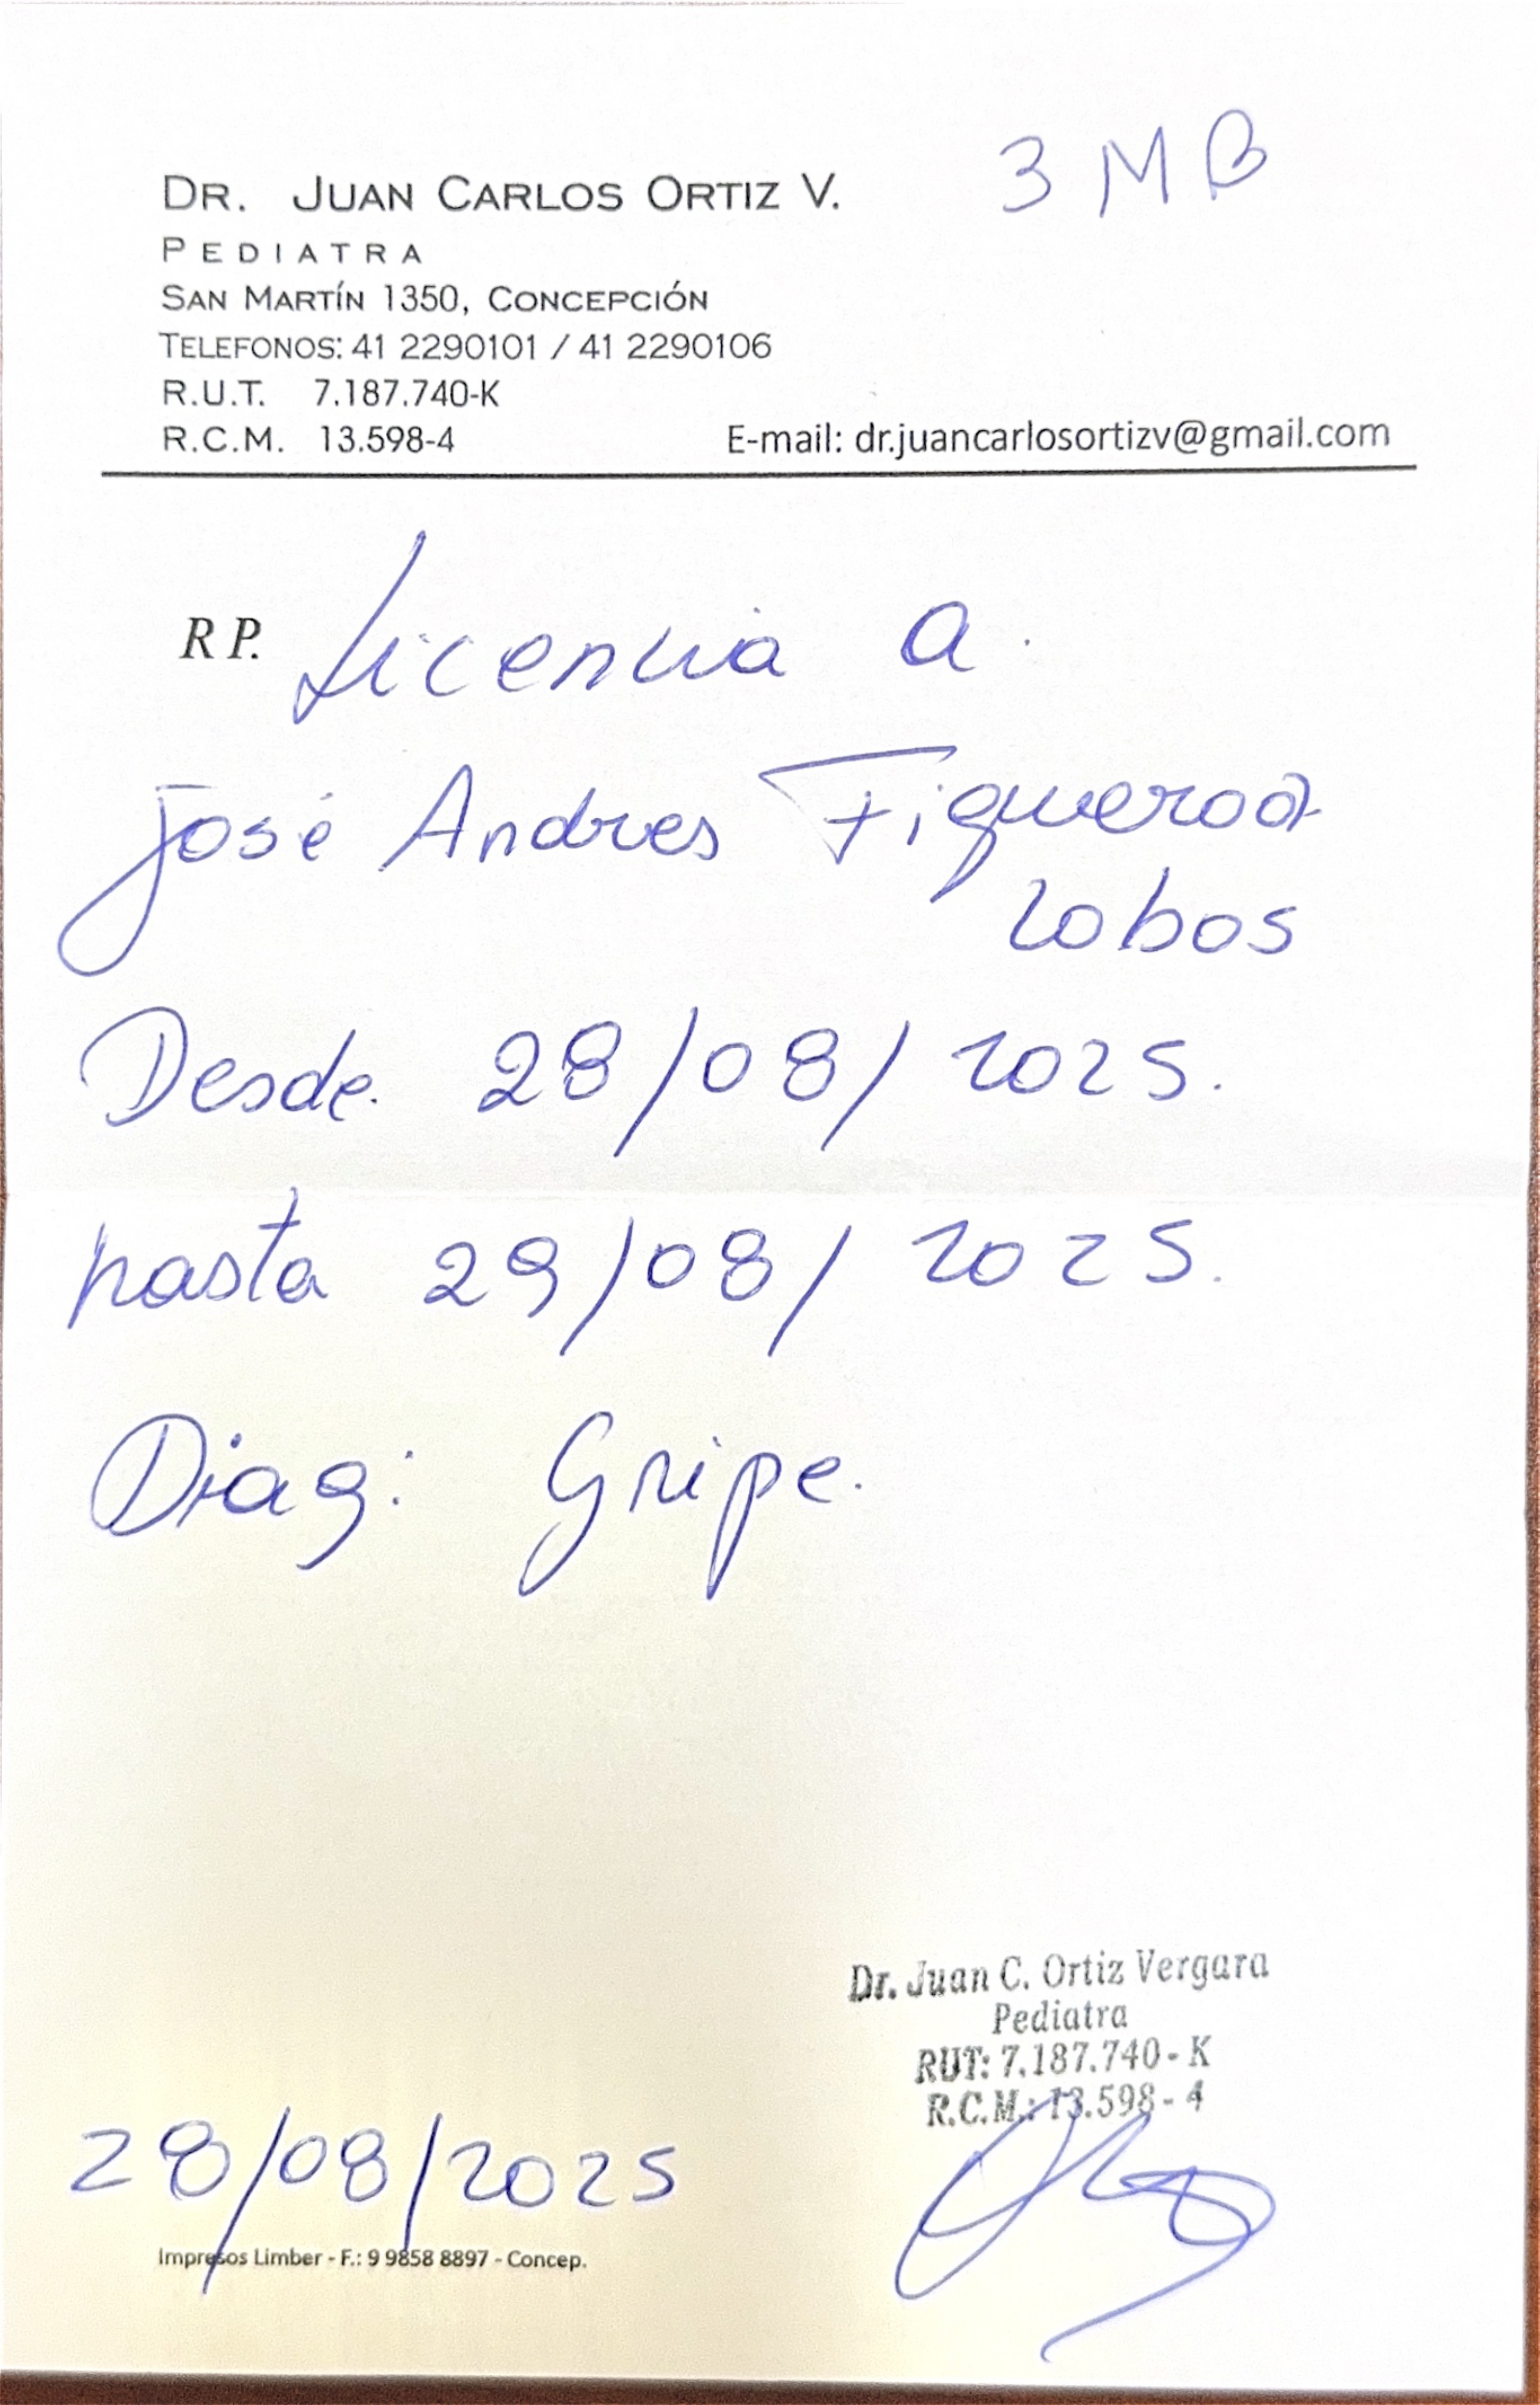 3 M B
DR. JUAN CARLOS ORTIZ V.
PEDIATRA
SAN MARTÍN 1350, CONCEPCIÓN
TELEFONOS: 41 2290101 / 41 2290106
R.U.T. 7.187.740-K
R.C.M. 13.598-4
E-mail: dr.juancarlosortizv@gmail.com
RP. Licencia a.
José Andres Figueroa
Lobos
Desde. 28/08/2025.
hasta 29/08/2025.
Diag: Gripe.
Dr. Juan C. Ortiz Vergara
Pediatra
RUT: 7.187.740-K
R.C.M.: 13.598-4
28/08/2025
Impresos Limber - F.: 9 9858 8897 - Concep.